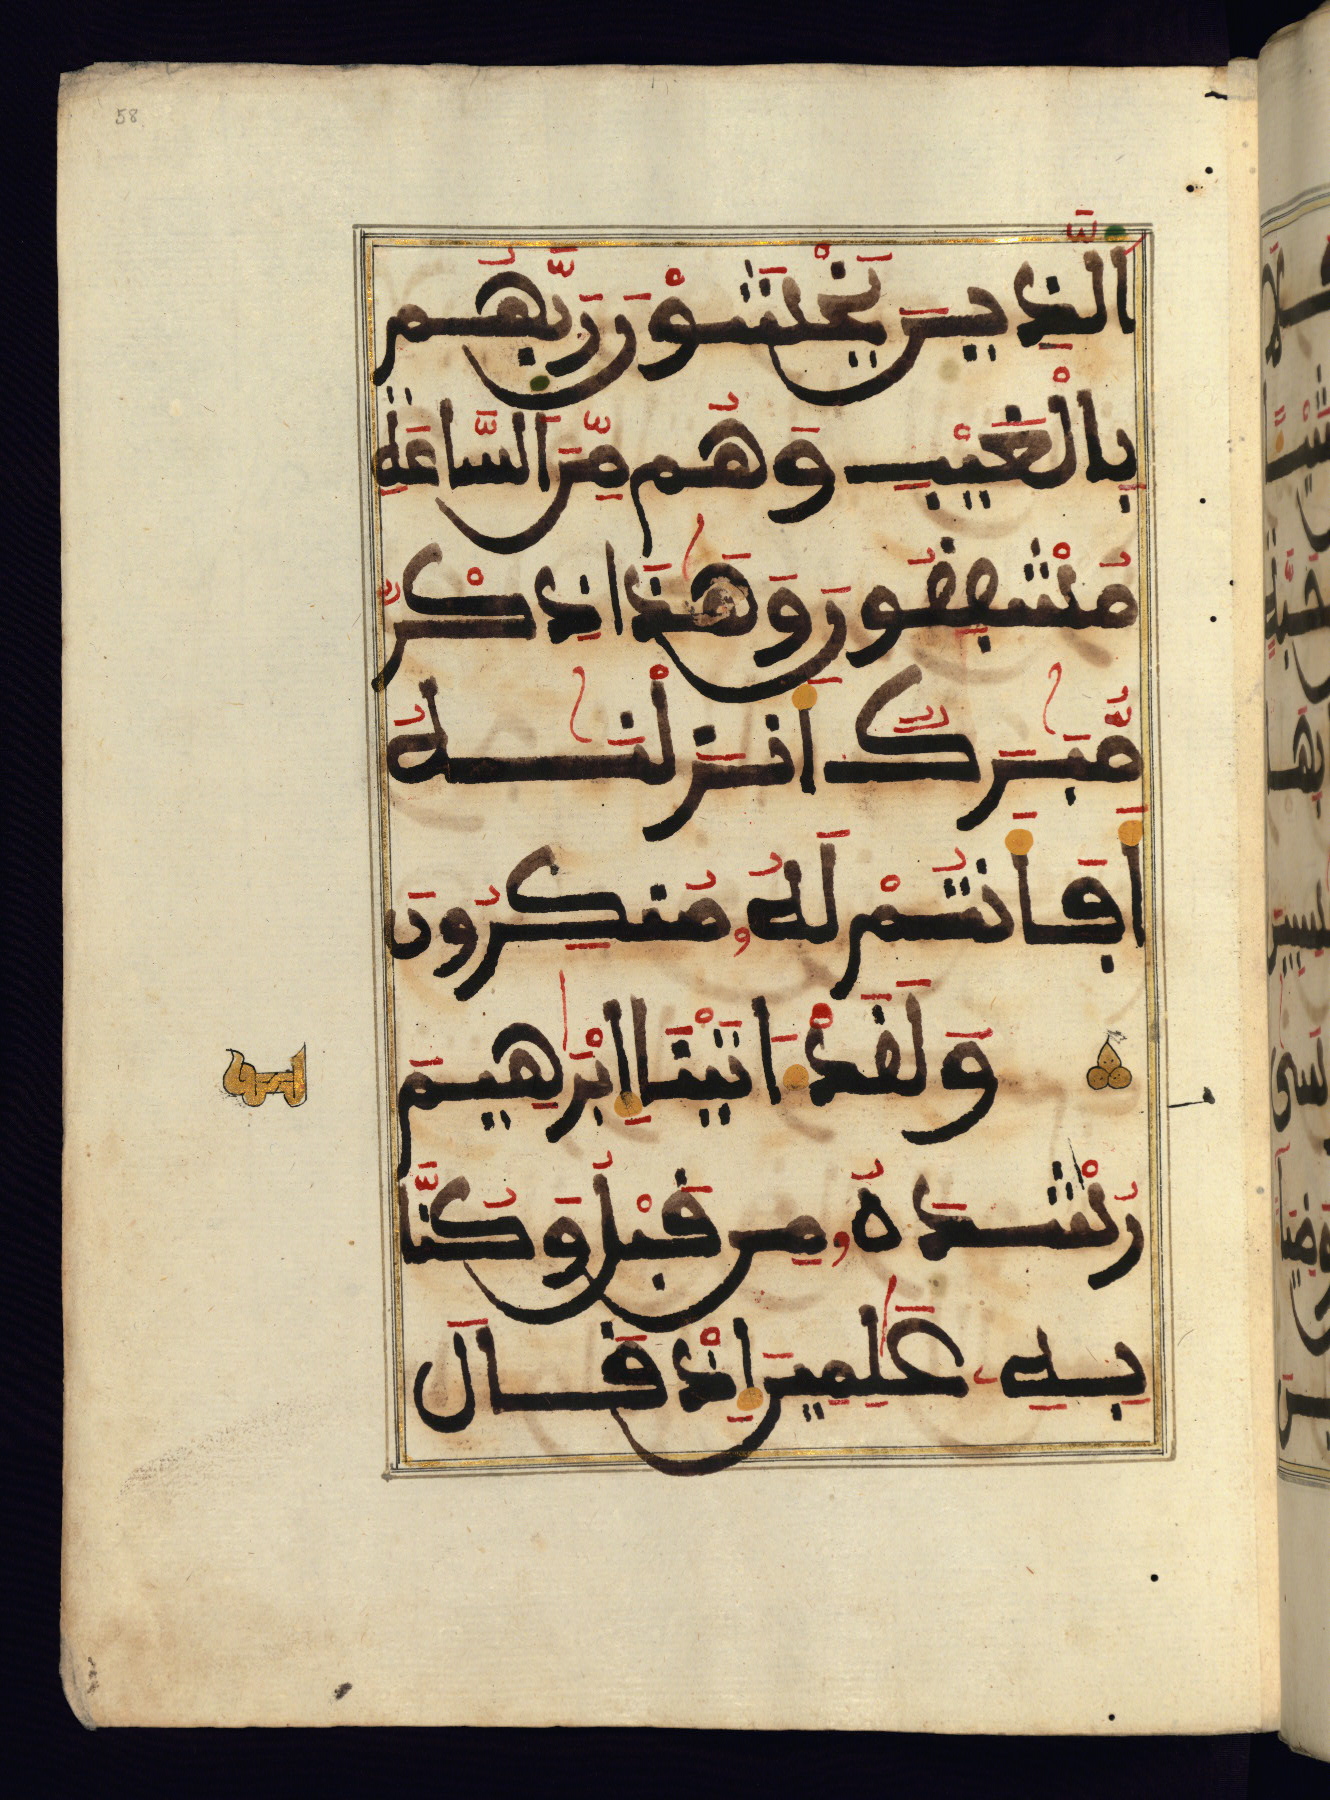 58
اَ۬لذِينَ يَخْشَوْنَ رَبَّهُم
بِالْغَيْبِ وَهُم مِّنَ اَ۬لسَّاعَةِ
مُشْفِقُونَ وَهَٰذَا ذِكْرٌ
مُّبَٰرَكٌ اَنزَلْنَٰهُ
أَفَأَنتُمْ لَهُۥ مُنكِرُونَ
وَلَقَدْ ءَاتَيْنَا إِبْرَٰهِيمَ
رُشْدَهُۥ مِن قَبْلُ وَكُنَّا
بِهِۦ عَٰلِمِينَ إِذْ قَالَ